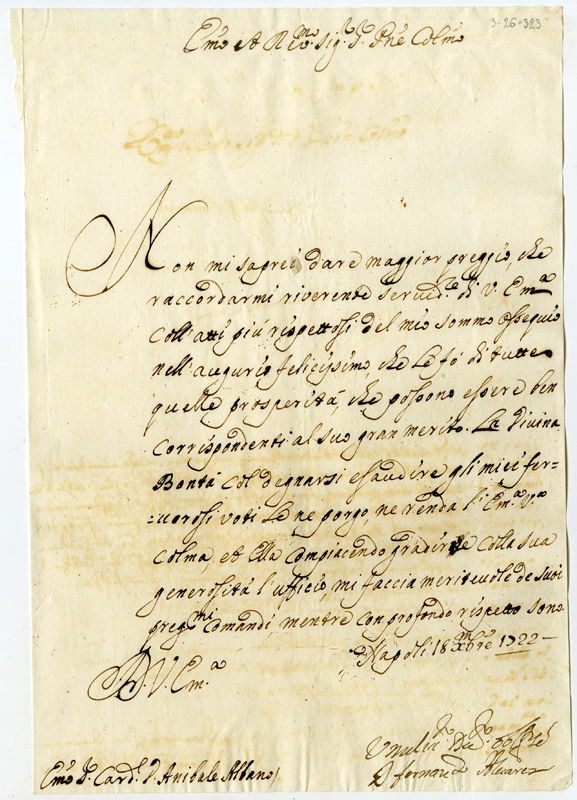 3-26-323
Emo et Rmo. Sigr. Pne Colmo
Non mi saprei dare maggior preggio, che
raccordarmi riverente servid.e di V. Emᵃ
coll'atti più rispettosi del mio sommo ossequio
nell'augurio felicissimo, che Le fò di tutte
quelle prosperità, che possono essere ben
corrispondenti al suo gran merito. La Divina
Bontà col degnarsi esaudire gli miei fer=
=uorosi voti Le ne porgo, ne renda l' Em.ᵃ Vᵃ
colma, et Ella compiacendo gradirne colla sua
generosità l'ufficio, mi faccia meritevole de suoi
pregmi comandi, mentre con profondo rispetto sono
Napoli 18 Xbre 1722
D. V. Em.ᵃ
Vmilir Deur
Emo Sr. Card. D. Anibale Albano
D fernando Alvarez